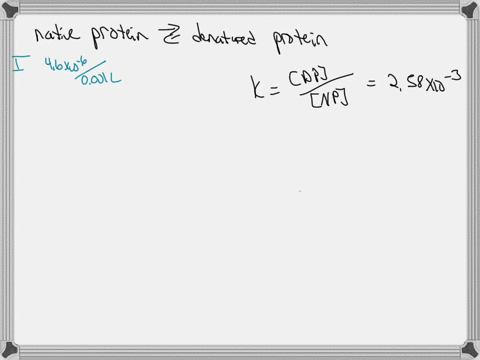 native protein ⇄ denatured protein
I 4.6x10⁻⁶/0.001L
K = [DP]/[NP] = 2.58x10⁻³